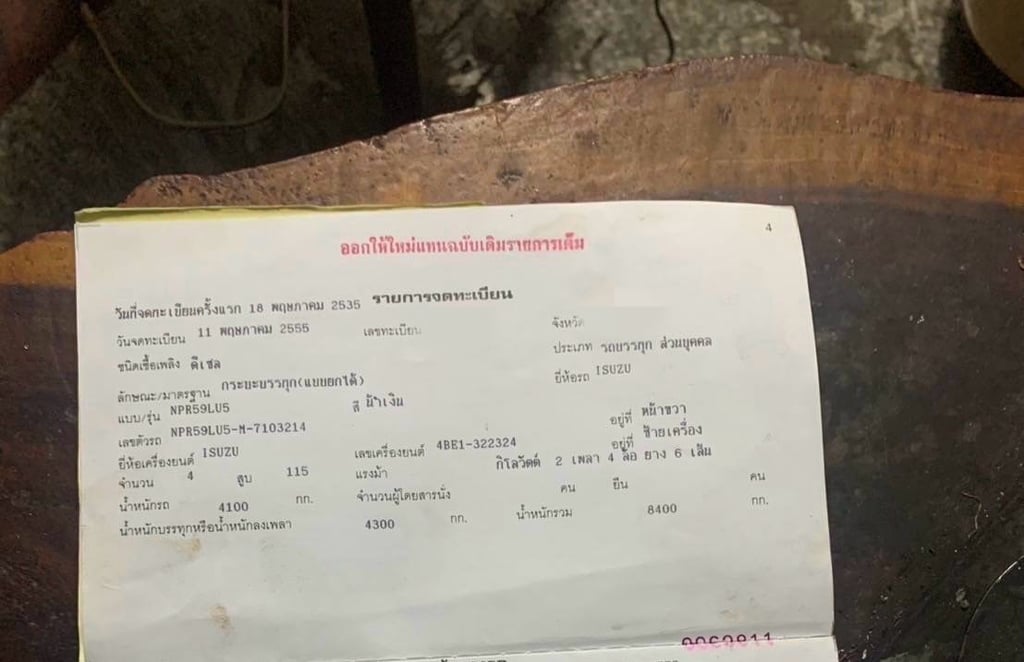 4
ออกให้ใหม่แทนฉบับเดิมรายการเต็ม
รายการจดทะเบียน
วันที่จดทะเบียนครั้งแรก 18 พฤษภาคม 2535
วันจดทะเบียน 11 พฤษภาคม 2555 เลขทะเบียน จังหวัด
ชนิดเชื้อเพลิง ดีเซล ประเภท รถบรรทุก ส่วนบุคคล
ลักษณะ/มาตรฐาน กระบะบรรทุก(แบบยกได้) ยี่ห้อรถ ISUZU
แบบ/รุ่น NPR59LU5 สี น้ำเงิน
เลขตัวรถ NPR59LU5-M-7103214 อยู่ที่ หน้าขวา
ยี่ห้อเครื่องยนต์ ISUZU เลขเครื่องยนต์ 4BE1-322324 อยู่ที่ ซ้ายเครื่อง
จำนวน 4 สูบ 115 แรงม้า กิโลวัตต์ 2 เพลา 4 ล้อ ยาง 6 เส้น
น้ำหนักรถ 4100 กก. จำนวนผู้โดยสารนั่ง คน ยืน คน
น้ำหนักบรรทุกหรือน้ำหนักลงเพลา 4300 กก. น้ำหนักรวม 8400 กก.